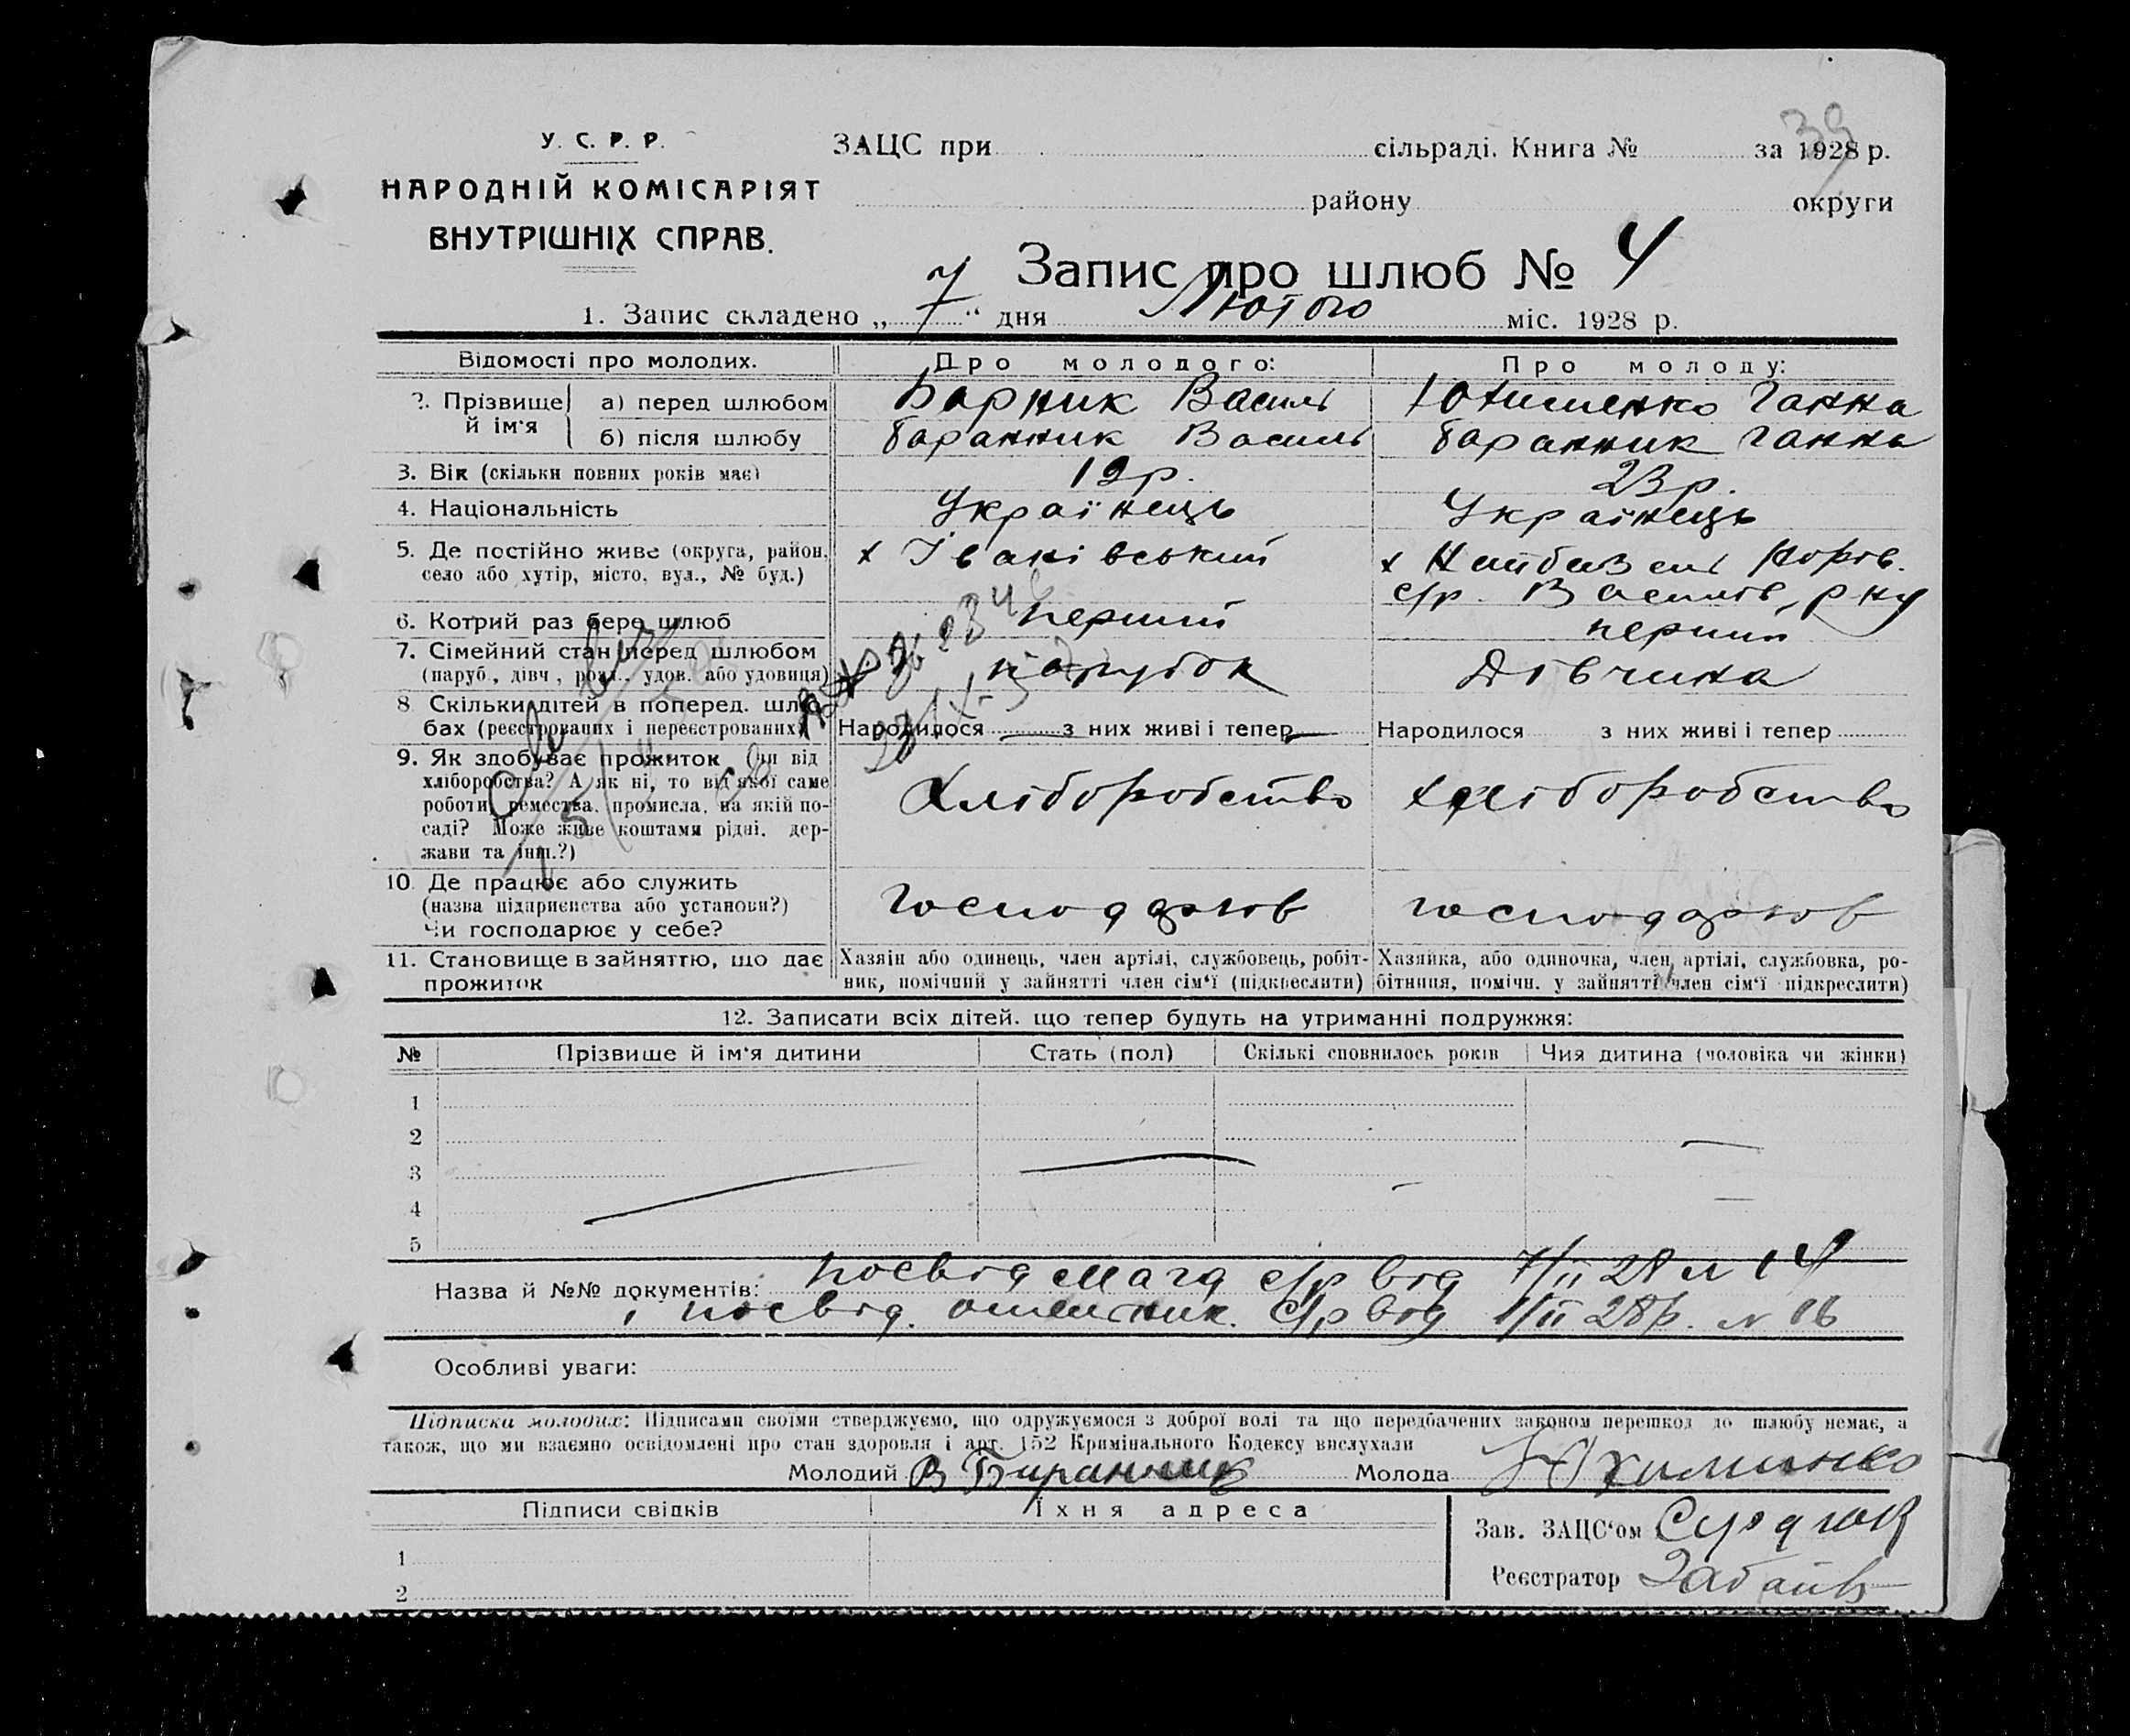 У. С. Р. Р.
НАРОДНІЙ КОМІСАРІЯТ
ВНУТРІШНІХ СПРАВ.
ЗАЦС при сільраді. Книга № за 1928 р.
39
району округи
Запис про шлюб № 4
1. Запис складено „ 7 “ дня Лютого міс. 1928 р.
Відомості про молодих. Про молодого: Про молоду:
2. Прізвище й ім'я а) перед шлюбом Барник Василь Ганна
б) після шлюбу Баранник Василь Баранник Ганна
3. Вік (скільки повних років має) 19 р. 23 р.
4. Національність Українець Українець
5. Де постійно живе (округа, район, село або хутір, місто, вул., № буд.) х Іваківський х
с/р. Василів. р-ну
6. Котрий раз бере шлюб перший перший
7. Сімейний стан перед шлюбом (паруб., дівч., розл., удов. або удовиця) парубок Дівчина
8 Скільки дітей в поперед. шлюбах (реєстрованих і нереєстрованих) Народилося з них живі і тепер Народилося з них живі і тепер
9. Як здобуває прожиток (чи від
хліборобства? А як ні, то від якої саме
роботи, ремества, промисла, на якій по-
саді? Може живе коштами рідні, дер-
жави та інш.?)
Хліборобство хліборобство
10. Де працює або служить
(назва підприємства або установи?)
Чи господарює у себе?
господарюв господарюв
11. Становище в зайняттю, що дає прожиток
Хазяїн або одинець, член артілі, службовець, робіт-
ник, помічний у зайнятті член сім'ї (підкреслити)
Хазяйка, або одиночка, член артілі, службовка, ро-
бітниця, помічн. у зайнятті член сім'ї підкреслити)
12. Записати всіх дітей, що тепер будуть на утриманні подружжя:
№ Прізвище й ім'я дитини Стать (пол) Скількі сповнилось років Чия дитина (чоловіка чи жінки)
1
2
3
4
5
Назва й №№ документів: посвід с/р від 7/ІІ 28 N 14
і посвід. с/р від 1/ІІ 28р. N 16
Особливі уваги:
Підписка молодих: Підписами своїми стверджуємо, що одружуємося з доброї волі та що передбачених законом перешкод до шлюбу немає, а
також, що ми взаємно освідомлені про стан здоровля і арт. 152 Кримінального Кодексу вислухали
Молодий В Баранник Молода
Підписи свідків Їхня адреса
Зав. ЗАЦС'ом
1
Реєстратор
2